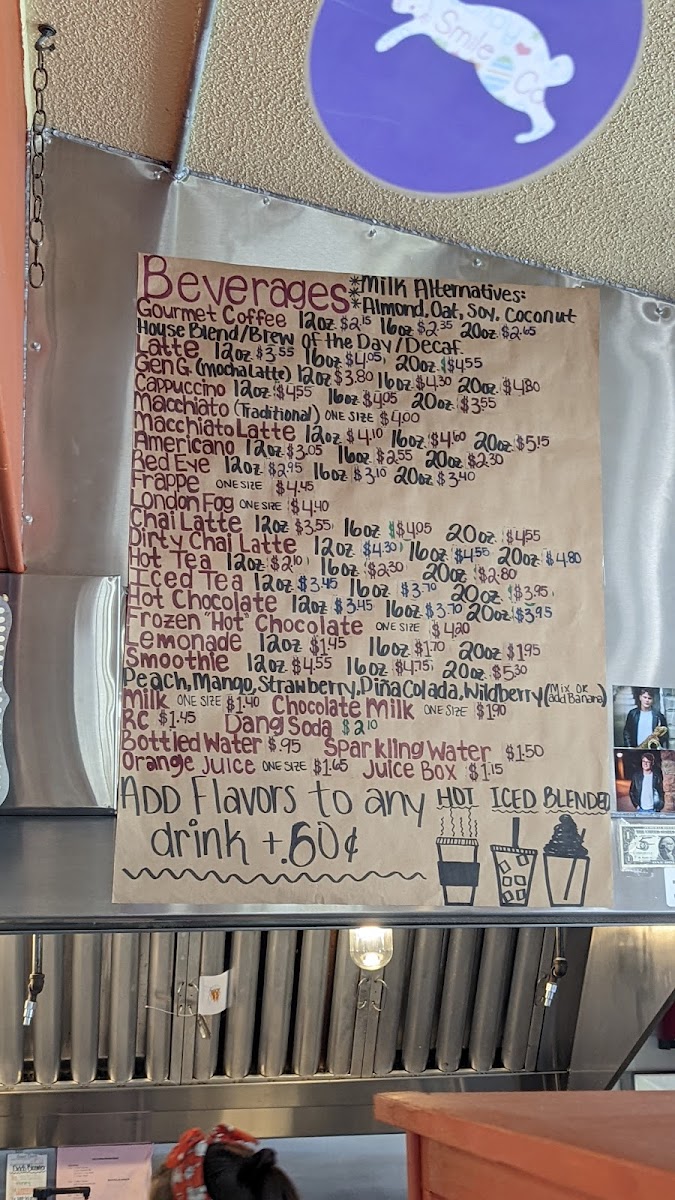 Smile
Co
Beverages
*Milk Alternatives:
*Almond, Oat, Soy, Coconut
Gourmet Coffee 12oz $2.15 16oz $2.35 20oz $2.65
House Blend/Brew of the Day/Decaf
Latte 12oz $3.55 16oz $4.05 20oz $4.55
Gen G. (mocha Latte) 12oz $3.80 16oz $4.30 20oz $4.80
Cappuccino 12oz $4.55 16oz $4.05 20oz $3.55
Macchiato (Traditional) ONE SIZE $4.00
Macchiato Latte 12oz $4.10 16oz $4.60 20oz $5.15
Americano 12oz $3.05 16oz $2.55 20oz $2.30
Red Eye 12oz $2.95 16oz $3.10 20oz $3.40
Frappe ONE SIZE $4.45
London Fog ONE SIZE $4.40
Chai Latte 12oz $3.55 16oz $4.05 20oz $4.55
Dirty Chai Latte 12oz $4.30 16oz $4.55 20oz $4.80
Hot Tea 12oz $2.10 16oz $2.30 20oz $2.80
Iced Tea 12oz $3.45 16oz $3.70 20oz $3.95
Hot Chocolate 12oz $3.45 16oz $3.70 20oz $3.95
Frozen "Hot" Chocolate ONE SIZE $4.20
Lemonade 12oz $1.45 16oz $1.70 20oz $1.95
Smoothie 12oz $4.55 16oz $4.75 20oz $5.30
Peach, Mango, Strawberry, Piña Colada, Wildberry (Mix or add Banana)
Milk ONE SIZE $1.40 Chocolate Milk ONE SIZE $1.90
RC $1.45 Dang Soda $2.10
Bottled Water $.95 Sparkling Water $1.50
Orange Juice ONE SIZE $1.65 Juice Box $1.15
Add Flavors to any
drink +.60¢
HOT ICED BLENDED